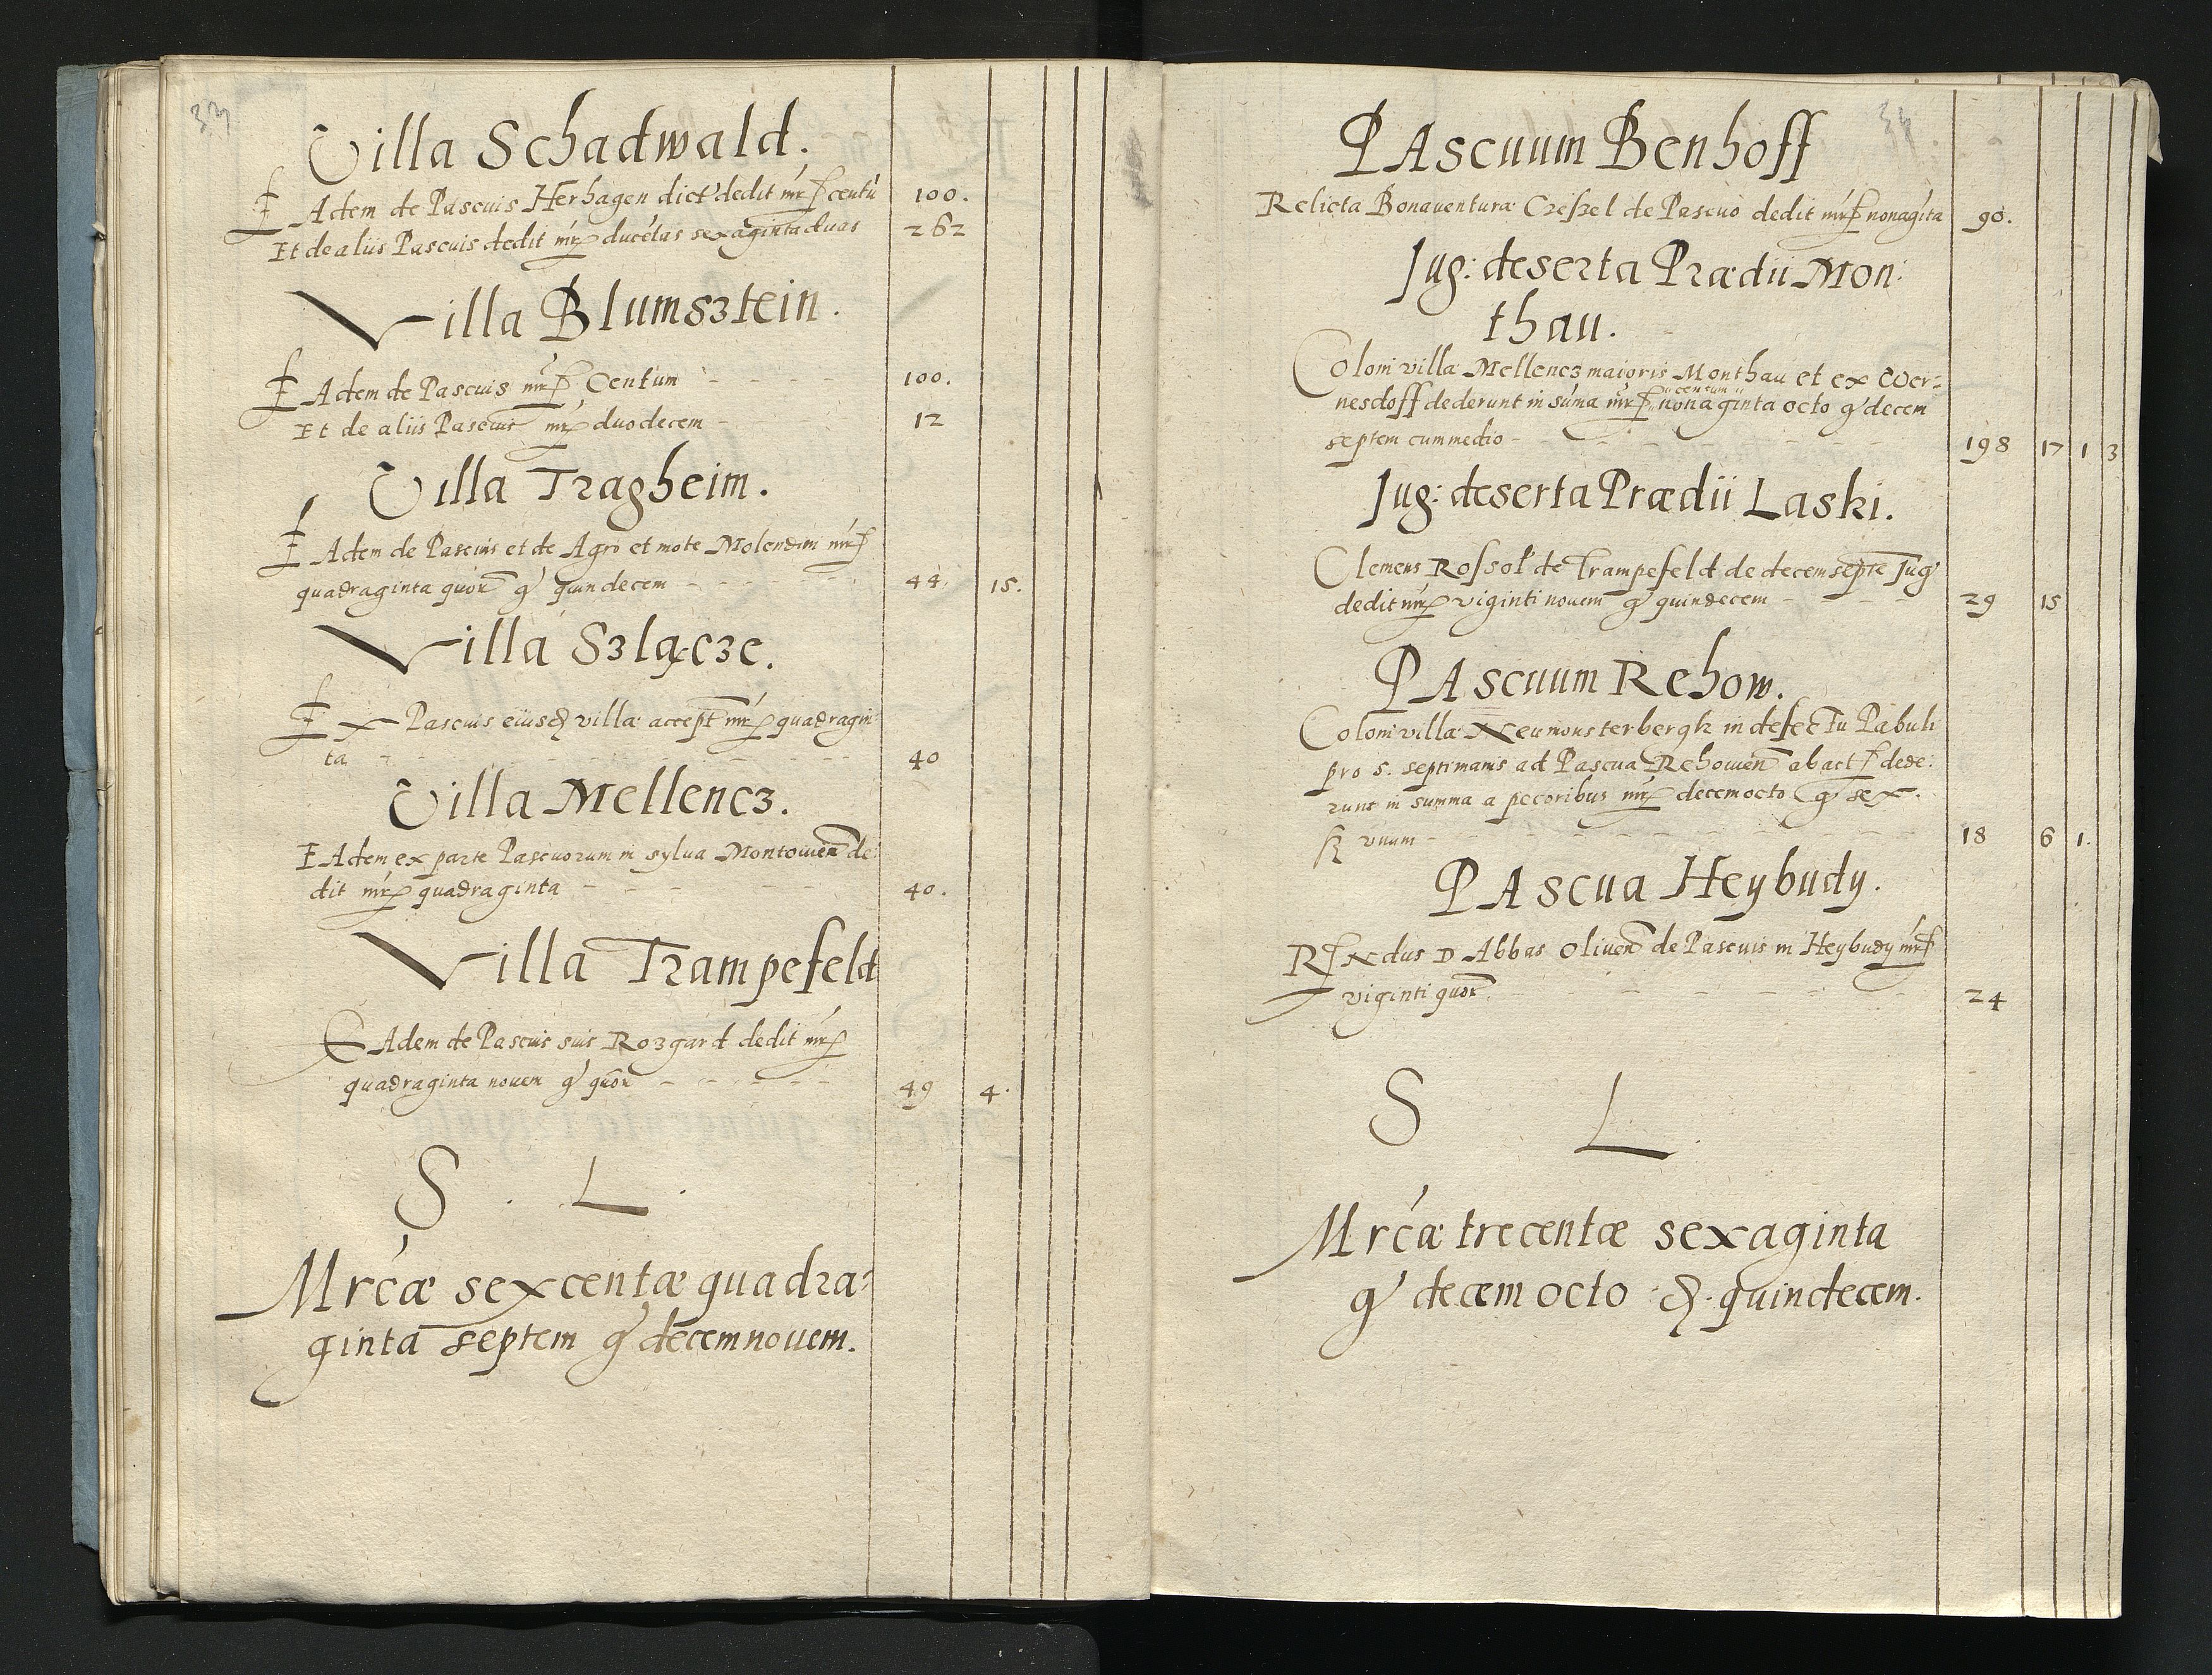 33
Villa Schadwald.
EAdem de Pascuis Herhagen dict' dedit mr centu 100.
Et de aliis Pascuis dedit mr ducetas sexaginta duas 262
Villa Blumsztein.
EAdem de Pascuis mr Centum 100.
Et de aliis Pascuis mr duodecem 12
Villa Tragheim.
EAdem de Pascuis et de Agro et mote Molendini mr
quadraginta quor g quindecem 44. 15.
Villa Szlącze.
Ex Pascuis eiusd villæ accept mr quadragin
ta 40
Villa Mellencz.
EAdem ex parte Pascuorum in sylva Montouien de
dit mr quadraginta 40.
Villa Trampefeld
EAdem de Pascuis suis Rozgard dedit mr
quadraginta novem g quor 49 4.
S. L.
Mrcæ sexcentæ quadra:
ginta septem g decemnouem.
34
PAscuum Benhoff
Relicta Bonauenturæ Czessel de Pascuo dedit mr nonagita 90.
Jug: deserta Prædii Mon:
thau.
Coloni villæ Mellencz maioris Monthau et ex Wer:
nesdoff dederunt in suma mr centum nonaginta octo g decem
septem cum medio 198 17 1 3
Jug: deserta Prædii Laski.
Clemens Rossol de Trampefeld de decem septe Jug
dedit mr viginti nouem g quindecem 29 15
PAscuum Rehow.
Coloni villæ Neumonsterbergk in defectu Pabuli
pro 5. septimanis ad Pascua Rehouien abact dede:
runt in summa a pecoribus mr decemocto g sex.
ß vnum 18 6 1.
PAscua Heybudy.
Rndus D Abbas Oliuen de Pascuis in Heybudy mr
viginti quor. 24
S L.
Mrcæ trecentæ sexaginta
g decem octo d. quindecem.